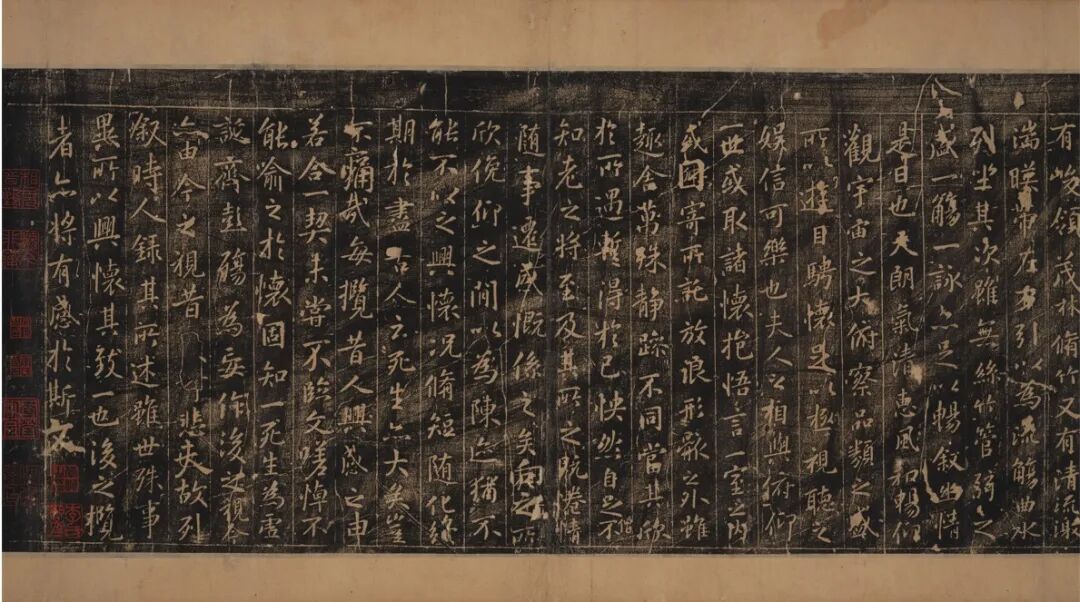 有峻領茂林脩竹又有清流激
湍暎帶左右引以為流觴曲水
列坐其次雖無絲竹管弦之
盛一觴一詠亦足以暢敘幽情
是日也天朗氣清惠風和暢仰
觀宇宙之大俯察品類之盛
所以遊目騁懷足以極視聽之
娛信可樂也夫人之相與俯仰
一世或取諸懷抱悟言一室之內
或因寄所託放浪形骸之外雖
趣舍萬殊靜躁不同當其欣
於所遇暫得於己怏然自足不
知老之將至及其所之既惓情
隨事遷感慨係之矣向之所
欣俛仰之閒以為陳迹猶不
能不以之興懷況脩短隨化終
期於盡古人云死生亦大矣豈
不痛哉每攬昔人興感之由
若合一契未嘗不臨文嗟悼不
能喻之於懷固知一死生為虛
誕齊彭殤為妄作後之視今
亦由今之視昔悲夫故列
敘時人錄其所述雖世殊事
異所以興懷其致一也後之攬
者亦將有感於斯文